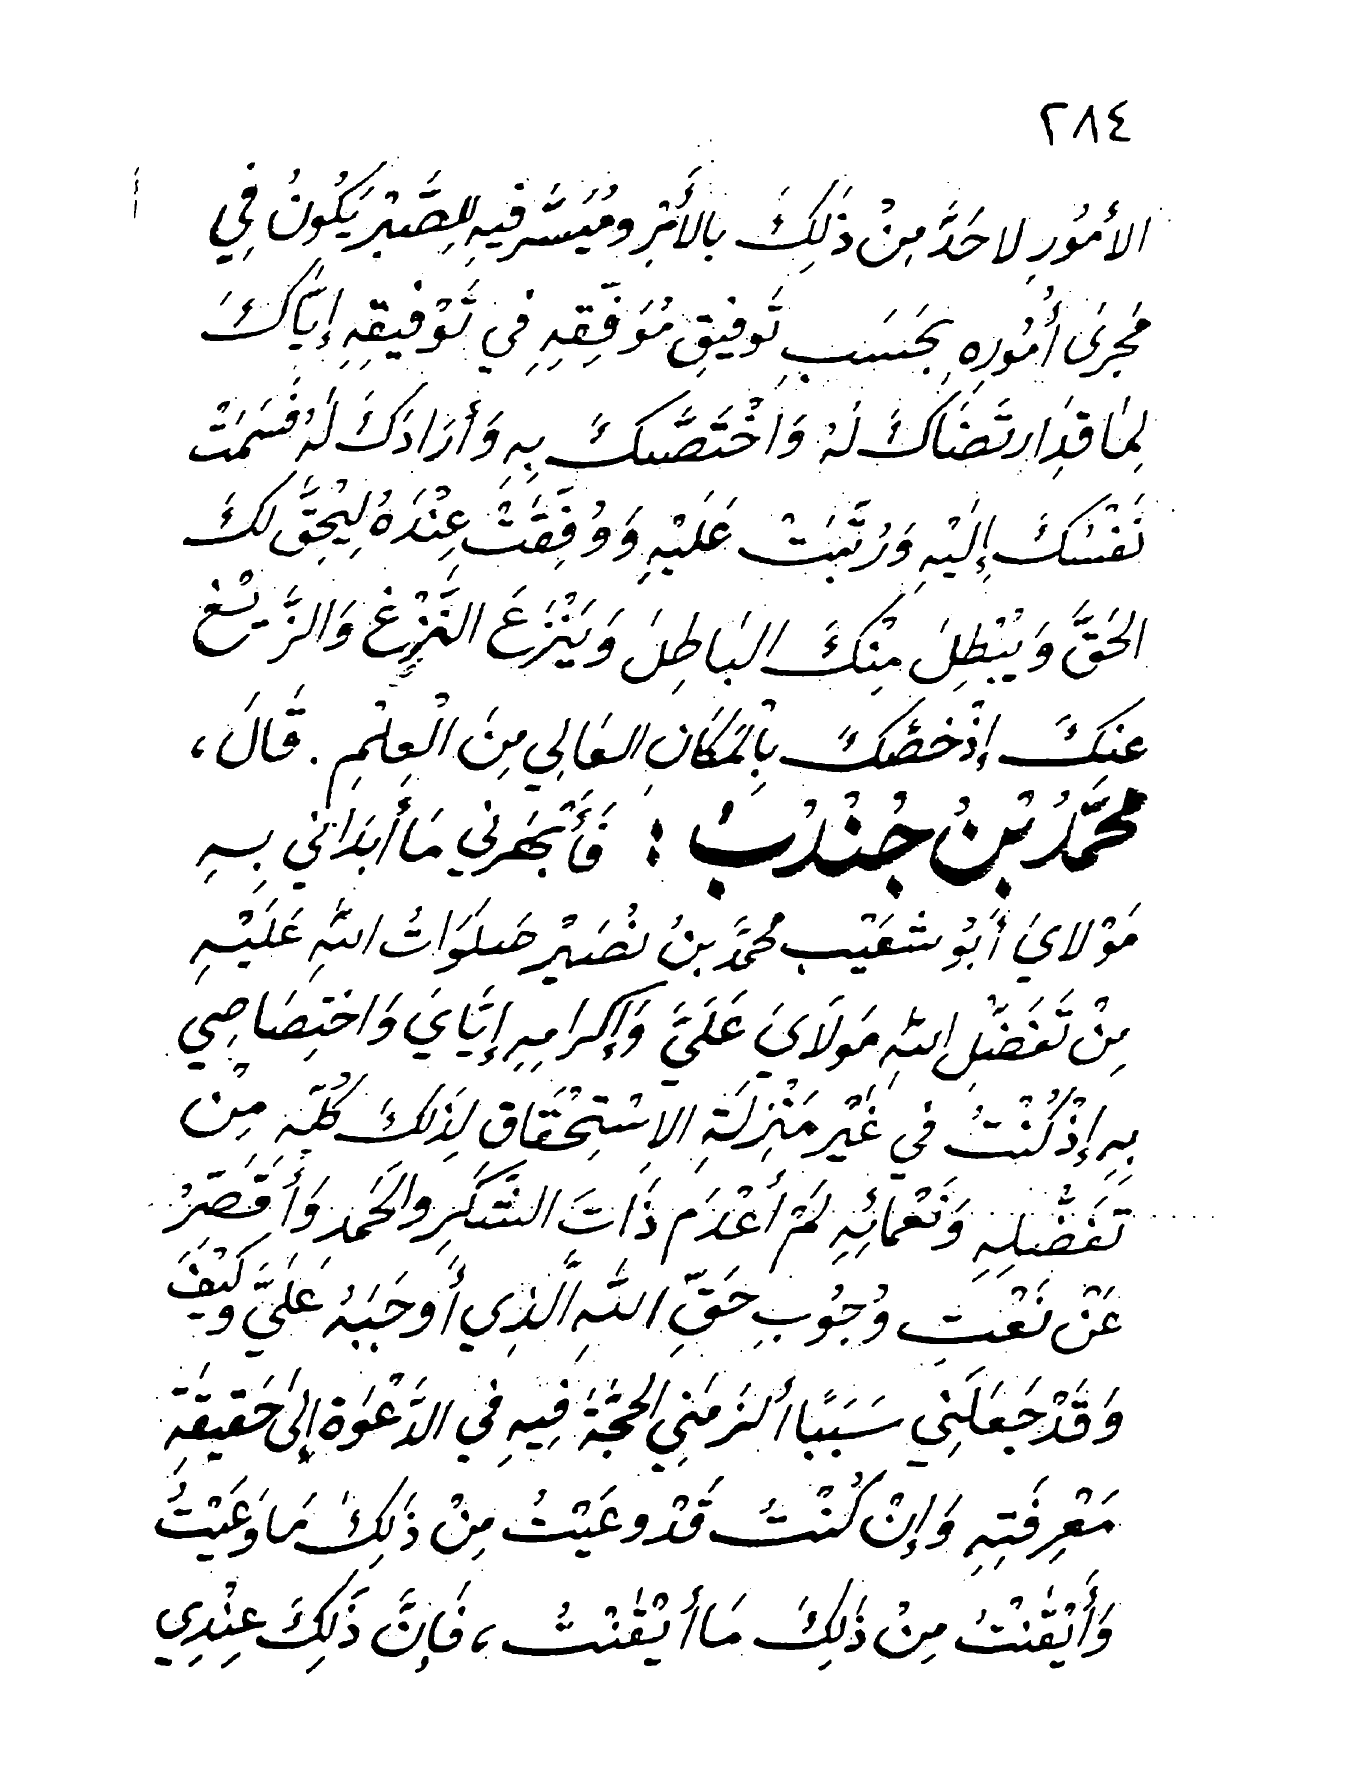 ٢٨٤
الأمُورِ لاحَدَّ مِنْ ذَلِكَ بالأَمْرِ ومُيَسَّر فيهِ لِلصَّبْرِ يَكُونُ فِي
مَجرَى أُمُورِهِ بِحَسَبِ تَوفيقِ مُوَفِّقِهِ فِي تَوْفِيقِهِ إيَّاكَ
لِمَا قَدِ ارتَضَاكَ لَهُ وَاخْتَصَّكَ بِهِ وَأَرَادَكَ لَهُ فَسَمَتْ
نَفْسُكَ إلَيْهِ وَرُتِّبَتْ عَلَيْهِ وَوُفِّقَتْ عِنْدَهُ لِيُحِقَّ لكَ
الحَقَّ وَيُبْطِلَ مِنْكَ البَاطِلَ وَيَنْزَعَ النَّزْغَ وَالزَّيْغَ
عنكَ إذْ خصَّكَ بِالمَكَانِ العَالِي مِنَ الْعِلْمِ . قَالَ ،
محمَّدُ بْنُ جُنْدُبْ : فَأَبْهَرنِي مَا أبدَاني بِهِ
مَوْلايَ أَبُو شعَيْب محمَّد بنُ نُصَيْر صَلَوَاتُ اللّهِ عَلَيْهِ
مِنْ تَفَضُّلِ اللّهِ مَولَايَ عَلَيَّ وَإكرامِهِ إيَّايَ وَاختِصَاصِي
بِهِ إذْ كُنْتُ فِي غَيْرِ مَنْزِلَةِ الاسْتِحْقَاقِ لِذَلكَ كُلِّهِ مِنْ
تفَضُّلِهِ وَنَعْمائِهِ لَمْ أعْدَم ذَاتَ الشَّكَرِ والحَمدِ وَأُقَصِّرُ
عَنْ نَعْتِ وُجُوبِ حَقِّ اللّهِ الَّذِي أَوجَبَهُ عَلَيَّ وكَيْفَ
وَقَدْ جَعَلَنِي سَبَبًا ألزَمَنِي الحجَّةَ فِيهِ فِي الدَّعْوَة إلَى حَقيقَةِ
مَعْرِفَتِهِ وَإنْ كُنْتُ قَدْ وعَيْتُ مِنْ ذَلِكَ مَا وَعَيْتُ
وَأَيْقَنْتُ مِنْ ذَلِكَ مَا أيْقَنْتُ ، فَإنَّ ذَلِكَ عِنْدِي